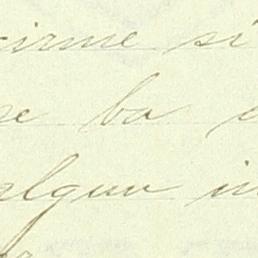 cirme si
se ba a
algun in